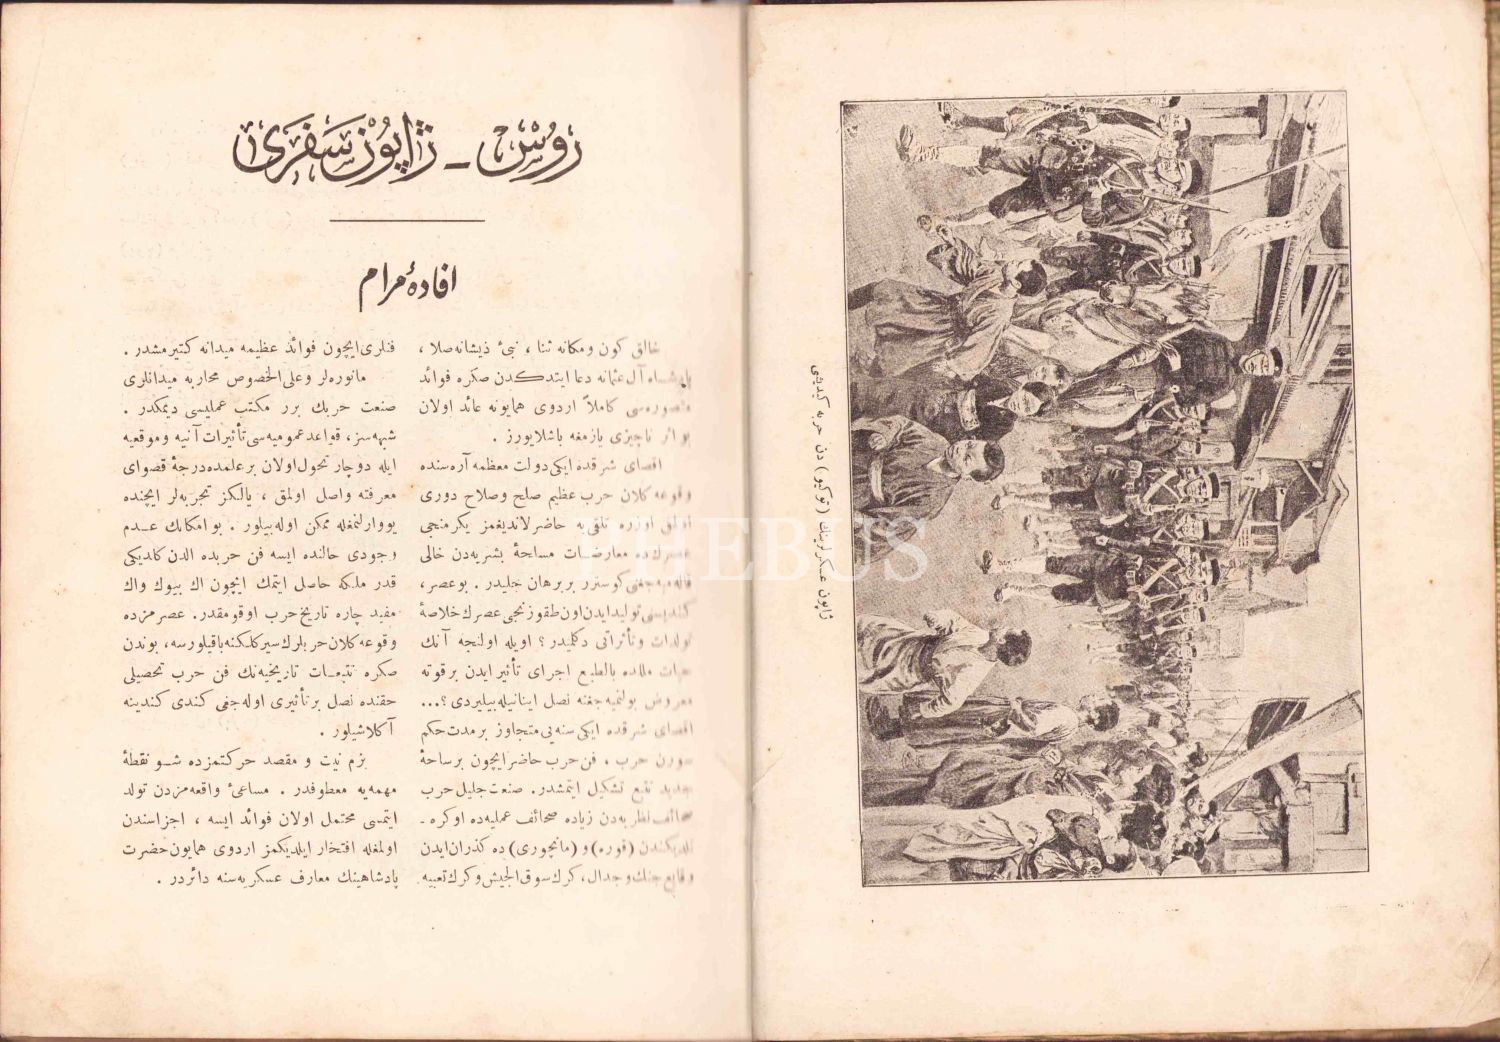 روس - ژاپون سفری
افادهٔ مرام
خالق كون و مكانه ثنا ، نبیٔ ذیشانه صلا ،
پادشاه آل عثمانه دعا ایتدكدن صكره فوائد
كاملاً اردوی همایونه عائد اولان
بو اثر ناچیزی یازمغه باشلایورز .
اقصای شرقده ایكی دولت معظمه آره سنده
وقوعه كلان حرب عظیم صلح و صلاح دوری
اولمق اوزره تلقی یه حاضرلاندیغمز یكرمنجی
عصرك ده معارضات مساحهٔ بشریه دن خالی
قاله میه جغنی كوسترر بر برهان جلیدر . بو عصر ،
كندیسنی تولید ایدن اون طقوزنجی عصرك خلاصهٔ
تولدات و تأثراتی دكلمیدر ؟ اویله اولنجه آنك
حیات مللده بالطبع اجرای تأثیر ایدن بر قوته
معروض بولنمیه جغنه نصل اینانیله بیلیردی ؟ ...
اقصای شرقده ایكی سنه یی متجاوز بر مدت حكم
سورن حرب ، فن حرب حاضر ایچون بر ساحهٔ
جدید تتبع تشكیل ایتمشدر . صنعت جلیل حرب
صحائف نظریه دن زیاده صحائف عملیه ده اوكره -
نلدیكندن (قوره) و (مانچوری) ده كذران ایدن
وقایع جنك و جدال ، كرك سوق الجیش و كرك تعبیه
فنلری ایچون فوائد عظیمه میدانه كتیرمشدر .
مانوره لر و علی الخصوص محاربه میدانلری
صنعت حربك برر مكتب عملیسی دیمكدر .
شبهه سز ، قواعد عمومیه سی تأثیرات آنیه و موقعیه
ایله دوچار تحول اولان بر علمده درجهٔ قصوای
معرفته واصل اولمق ، یالكز تجربه لر ایچنده
یووارلنمغله ممكن اوله بیلور . بو امكانك عدم
وجودی حالنده ایسه فن حربده الدن كلدیكی
قدر ملكه حاصل ایتمك ایچون اك بیوك و اك
مفید چاره تاریخ حرب اوقومقدر . عصرمزده
وقوعه كلان حربلرك سیر كلكنه باقیلورسه ، بوندن
صكره تتبعات تاریخیه نك فن حرب تحصیلی
حقنده نصل بر تأثیری اوله جغی كندی كندینه
آكلاشیلور .
بزم نیت و مقصد حركتمزده شو نقطهٔ
مهمه یه معطوفدر . مساعیٔ واقعه مزدن تولد
ایتمسی محتمل اولان فوائد ایسه ، اجزاسندن
اولمغله افتخار ایلدیكمز اردوی همایون حضرت
پادشاهینك معارف عسكریه سنه دائردر .
ژاپون عسكرلرینك (توكیو) دن حربه كیدیشی
PHEBUS